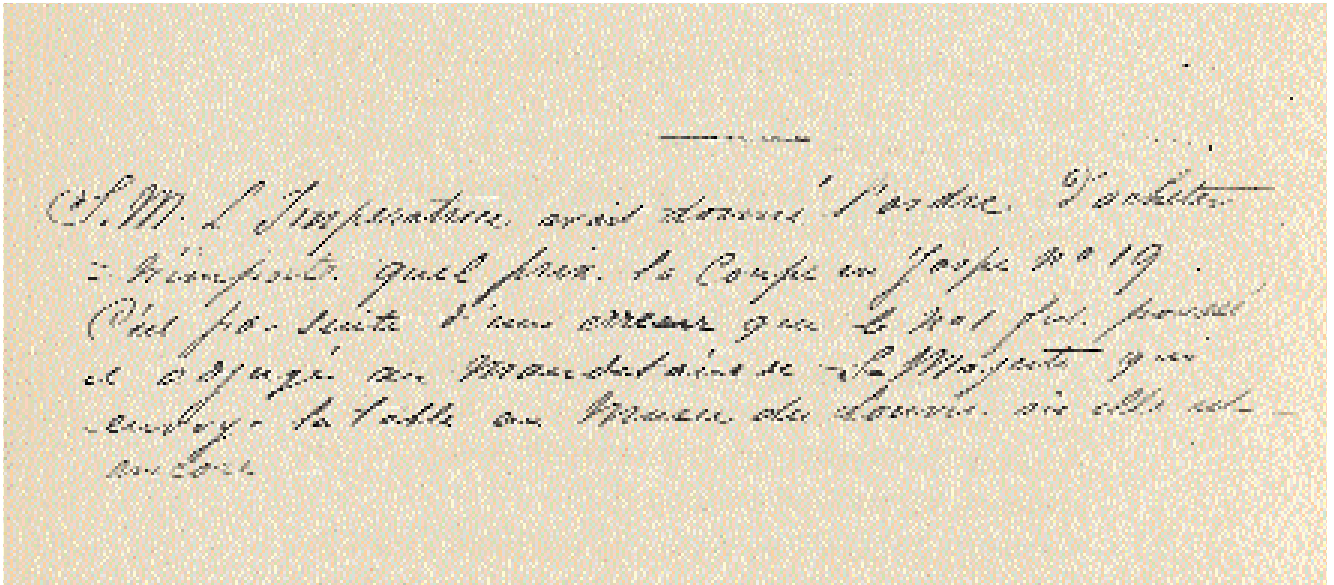 S. M. L'Imperatrice avait donné l'ordre d'acheter
à n'importe quel prix la Coupe en Jaspe no 19.
C'est par suite d'une erreur que le no 1 fut poussé
et adjugé au Mandataire de Sa Majesté qui
envoya la table au Musée du Louvre où elle est
encore